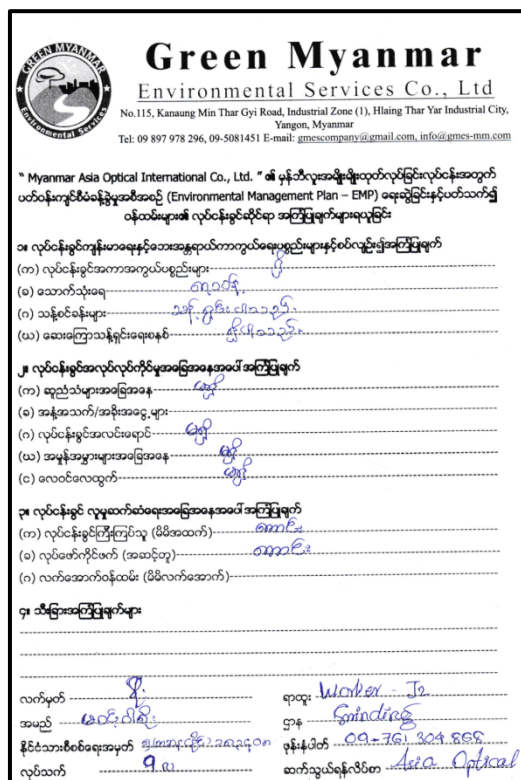 GREEN MYANMAR
Environmental Services
Green Myanmar
Environmental Services Co., Ltd
No.115, Kanaung Min Thar Gyi Road, Industrial Zone (1), Hlaing Thar Yar Industrial City,
Yangon, Myanmar
Tel: 09 897 978 296, 09-5081451 E-mail: gmescompany@gmail.com, info@gmes-mm.com
“ Myanmar Asia Optical International Co., Ltd. ” ၏ မှန်ဘီလူးအမျိုးမျိုးထုတ်လုပ်ခြင်းလုပ်ငန်းအတွက်
ပတ်ဝန်းကျင်စီမံခန့်ခွဲမှုအစီအစဉ် (Environmental Management Plan – EMP) ရေးဆွဲခြင်းနှင့်ပတ်သက်၍
ဝန်ထမ်းများ၏ လုပ်ငန်းခွင်ဆိုင်ရာ အကြံပြုချက်များရယူခြင်း
၁။ လုပ်ငန်းခွင်ကျန်းမာရေးနှင့်ဘေးအန္တရာယ်ကာကွယ်ရေးပစ္စည်းများနှင့်စပ်လျဉ်း၍အကြံပြုချက်
(က) လုပ်ငန်းခွင်အကာအကွယ်ပစ္စည်းများ
(ခ) သောက်သုံးရေ
(ဂ) သန့်စင်ခန်းများ သန့်ရှင်းပါသည်။
(ဃ) ဆေးကြောသန့်ရှင်းရေးစနစ် ရှိပါသည်။
၂။ လုပ်ငန်းခွင်အလုပ်လုပ်ကိုင်မှုအခြေအနေအပေါ် အကြံပြုချက်
(က) ဆူညံသံများအခြေအနေ
(ခ) အနံ့အသက်/အခိုးအငွေ့များ
(ဂ) လုပ်ငန်းခွင်အလင်းရောင်
(ဃ) အမှုန်အမွှားများအခြေအနေ
(င) လေဝင်လေထွက်
၃။ လုပ်ငန်းခွင် လူမှုဆက်ဆံရေးအခြေအနေအပေါ် အကြံပြုချက်
(က) လုပ်ငန်းခွင်ကြီးကြပ်သူ (မိမိအထက်) ကောင်း
(ခ) လုပ်ဖော်ကိုင်ဖက် (အဆင့်တူ) ကောင်း
(ဂ) လက်အောက်ဝန်ထမ်း (မိမိလက်အောက်)
၄။ သီးခြားအကြံပြုချက်များ
လက်မှတ်
ရာထူး Worker - J2
အမည်
ဌာန Grinding
နိုင်ငံသားစိစစ်ရေးအမှတ်
ဖုန်းနံပါတ် 09-761 304 866
လုပ်သက်
ဆက်သွယ်ရန်လိပ်စာ Asia Optical